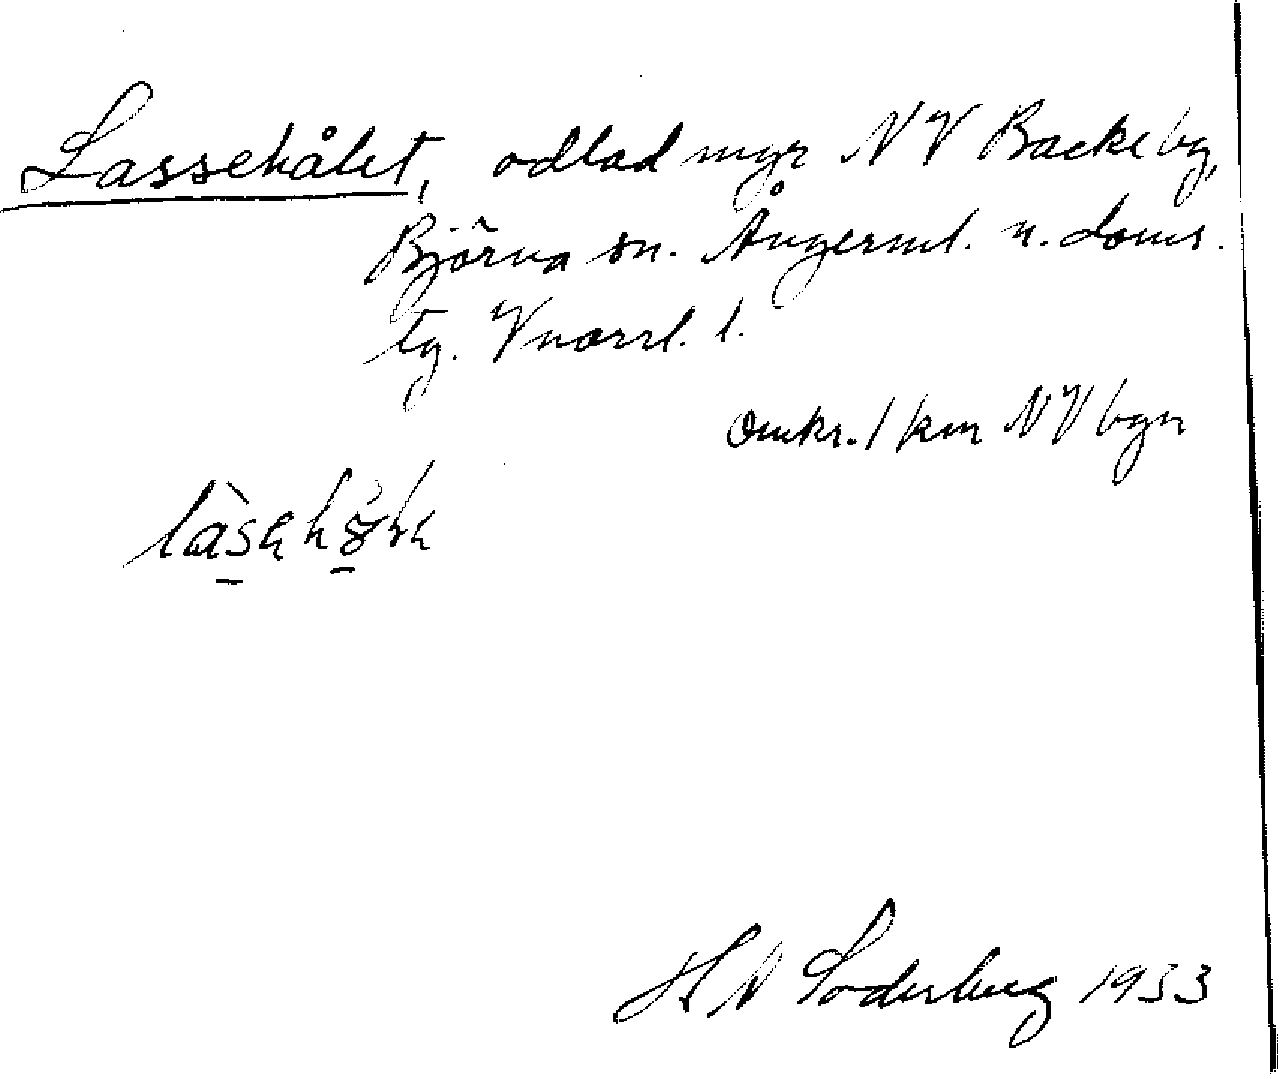 Lassehålet, odlad myr NV Backe by,
Björna sn. Ångerml. n. doms.
tg. Vnorrl. l.
Omkr. 1 km NV byn
H N Söderberg 1933